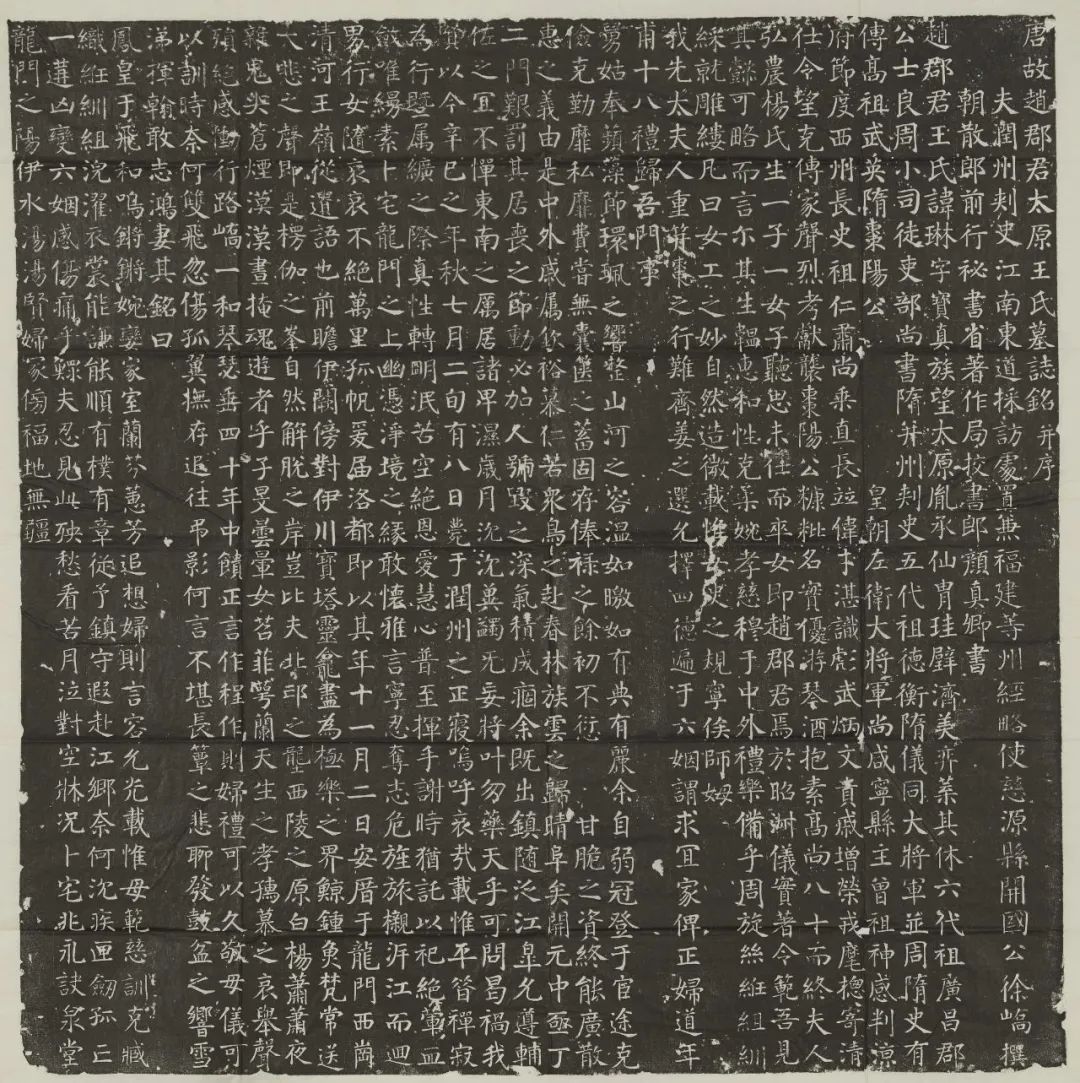 唐故趙郡君太原王氏墓誌銘 并序
夫潤州刾史江南東道採訪處置兼福建等州經略使慈源縣開國公徐嶠撰
朝散郎前行秘書省著作局校書郎顏真卿書
趙郡君王氏諱琳字寶真族望太原胤承仙胄珪璧濟美弈葉其休六代祖廣昌郡
公士良周小司徒吏部尚書隋并州刾史五代祖德衡隋儀同大將軍並周隋史有
傳高祖武英隋棗陽公 皇朝左衛大將軍尚咸寧縣主曾祖神感判涼
府節度西州長史祖仁肅尚乘直長竝偉才湛識彪武炳文貴戚增榮戎麾揔寄清
仕令望克傳家聲烈考獻襲棗陽公糠粃名實優游琴酒抱素高尚八十而終夫人
弘農楊氏生一子一女子聽忠未仕而卒女即趙郡君焉於昭淋儀實著令範吾見
其繇可略而言尒其生韞惠和性克柔婉孝慈穆于中外禮樂備乎周旋絲絍組紃
綵就雕縷凡曰女工之妙自然造微載惟女史之規寧俟師姆
我先太夫人重棗之行難齊姜之選允擇四德遍于六姻謂求宜家俾正婦道年
甫十八禮歸吾門事
舅姑奉蘋藻節環珮之響整山河之容溫如暾如有典有麗余自弱冠登于官途克
儉克勤靡私靡費當無囊篋之蓄固存俸祿之餘初不衒 甘脆之資終能廣散
惠之義由是中外戚属欽裕慕仁若衆鳥之赴春林族雲之歸晴阜矣開元中亟丁
二門艱罰其居喪之節動必加人號毀之深氣積成痼余既出鎮随泛江皋允遵輔
佐之宜不憚東南之厲居諸卑濕歲月沈沈冀蠲旡妄將叶勿藥天乎可問曷禍我
賢以今辛巳之年秋七月二旬有八日薨于潤州之正寢嗚呼哀哉載惟平昔禪寂
為行暨属纊之際真性轉明泯苦空絕恩愛慧心普至揮手謝時猶託以祀絕葷血
斂唯縵素卜宅龍門之上幽憑淨境之緣敢懷雅言寧忍奪志危旌旅櫬泝江而迴
男行女随哀哀不絕萬里孤帆爰届洛都即以其年十一月二日安厝于龍門西崗
清河王嶺從遷語也前瞻伊闕傍對伊川寶塔靈龕盡為極樂之界鯨鍾魚梵常送
大悲之聲即是楞伽之峯自然解脫之岸豈比夫北邙之壟西陵之原白楊蕭蕭夜
雜鬼哭蒼煙漠漠晝掩魂遊者乎子旻曇暈女苕菲萼蘭天生之孝孺慕之哀舉聲
殞絕感慟行路嶠一和琴瑟垂四十年中饋正言作程作則婦禮可以久敬母儀可
以訓時奈何雙飛忽傷孤翼撫存追往弔影何言不堪長簟之悲聊發鼓盆之響雪
涕揮翰敢志鴻妻其銘曰
鳳皇于飛和鳴鏘鏘婉孌家室蘭芬蕙芳追想婦則言容允光載惟母範慈訓克臧
織絍紃組浣濯衣裳能謙能順有樸有章從予鎮守遐赴江鄉奈何沈疾匣劒孤亡
一遘凶變六姻感傷痛乎鰥夫忍見此殃愁看苦月泣對空牀况卜宅兆永訣泉堂
龍門之陽伊水湯湯賢婦冢傍福地無疆